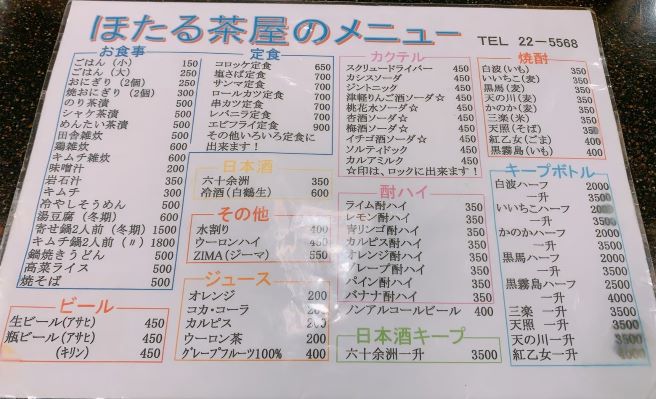 ほたる茶屋のメニュー
TEL 22-5568
お食事
ごはん(小) 150
ごはん(大) 250
おにぎり(2個) 250
焼おにぎり(2個) 300
のり茶漬 500
シャケ茶漬 500
めんたい茶漬 500
田舎雑炊 600
鶏雑炊 600
キムチ雑炊 600
味噌汁 200
岩石汁 350
キムチ 300
冷やしそうめん 500
湯豆腐(冬期) 600
寄せ鍋2人前(冬期) 1500
キムチ鍋2人前(〃) 1800
鍋焼きうどん 500
高菜ライス 500
焼そば 500
ビール
生ビール(アサヒ) 450
瓶ビール(アサヒ) 450
(キリン) 450
定食
コロッケ定食 650
塩さば定食 700
サンマ定食 700
ロールカツ定食 700
串カツ定食 700
レバニラ定食 700
エビフライ定食 900
その他いろいろ定食に
出来ます!
日本酒
六十余洲 350
冷酒(白鶴生) 600
その他
水割り 400
ウーロンハイ
ZIMA(ジーマ) 550
ジュース
オレンジ 200
コカ・コーラ 200
カルピス 200
ウーロン茶 200
グレープフルーツ100% 400
カクテル
スクリュードライバー 450
カシスソーダ 450
ジントニック 450
津軽りんご酒ソーダ☆ 450
桃花水ソーダ☆ 450
杏酒ソーダ☆ 450
梅酒ソーダ☆ 450
イチゴ酒ソーダ☆ 450
ソルティドック 450
カルアミルク 450
☆印は、ロックに出来ます!
酎ハイ
ライム酎ハイ 350
レモン酎ハイ 350
青リンゴ酎ハイ 350
カルピス酎ハイ 350
オレンジ酎ハイ 350
グレープ酎ハイ 350
パイン酎ハイ 350
バナナ酎ハイ 350
ノンアルコールビール 400
日本酒キープ
六十余洲一升 3500
焼酎
白波(いも) 350
いいちこ(麦) 350
黒馬(麦) 350
天の川(麦) 350
かのか(麦) 350
三楽(米) 350
天照(そば) 350
紅乙女(ごま) 400
黒霧島(いも) 400
キープボトル
白波ハーフ 2000
一升 3500
いいちこハーフ 2000
一升 3500
かのかハーフ 2000
一升 3500
黒馬ハーフ 2000
一升 3500
黒霧島ハーフ 2500
一升 4000
三楽 一升 3500
天照 一升 3500
天の川一升 3500
紅乙女一升